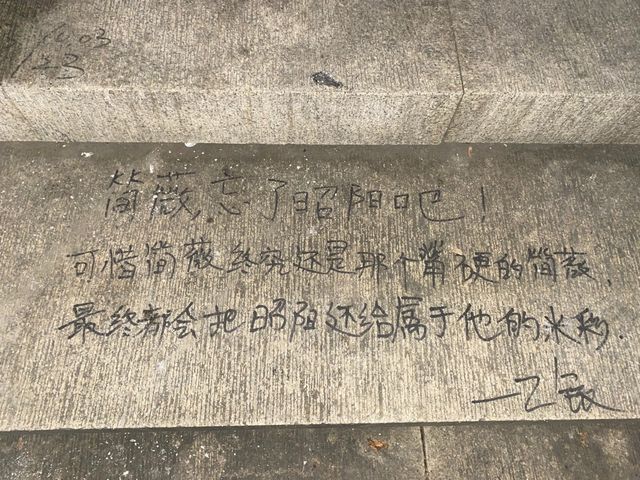 简薇,忘了昭阳吧!
可惜简薇终究还是那个嘴硬的简薇,
最终都会把昭阳还给属于他的米彩.